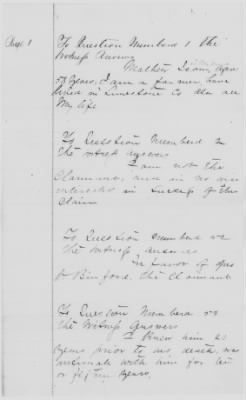 Page 1
To Question Number 1 the
Witness Answers
Mathew Isom, age
years, I am a farmer have
lived in Limestone Co Ala all
My life
To Question Numbered
the witness answers
I am not the
Claimant, and in no
interested in success of the
Claim
To Question Numbered
the witness answers
In favor of
Binford the Claimant
To Question Numbered
the Witness Answers
I knew him
years prior to his death, was
intimate with him for ten
or fifteen years